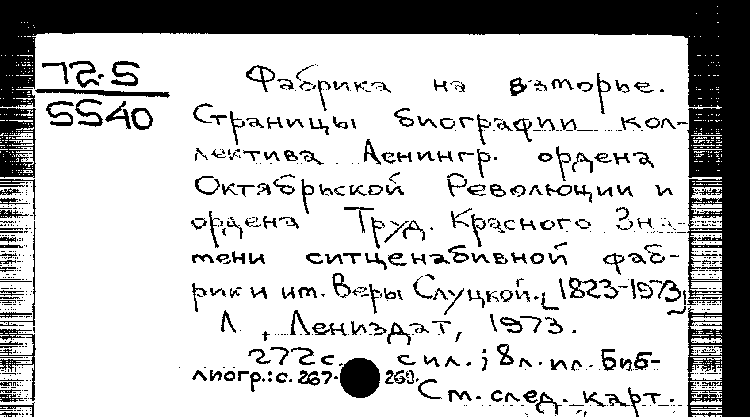 72-5
5540
Фабрика на взморье.
Страницы биографии кол-
лектива Ленингр. ордена
Октябрьской Революции и
ордена Труд. Красного Зна-
мени ситценабивной фаб-
рики им. Веры Слуцкой. [1823-1973]
Л., Лениздат, 1973.
272 с. с ил.; 8 л. ил. Биб-
лиогр.: с. 267-269.
См. след. карт.